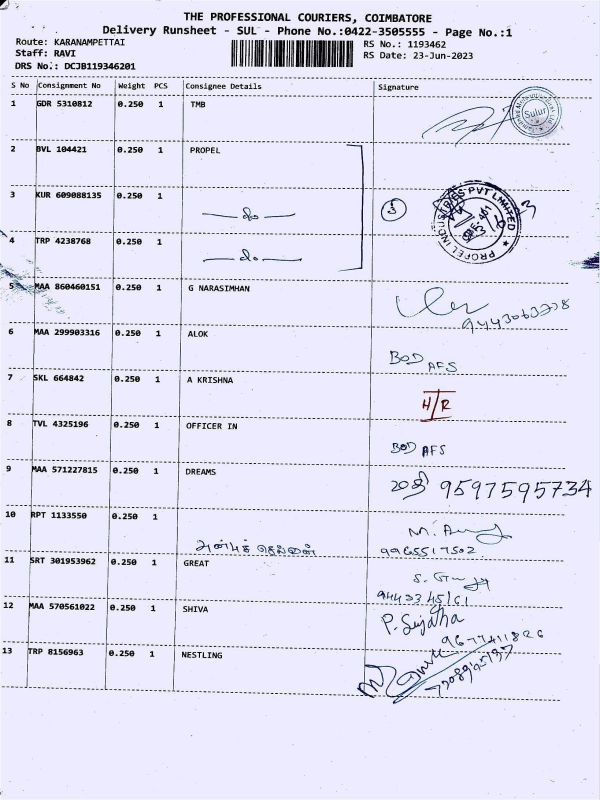 THE PROFESSIONAL COURIERS, COIMBATORE
Delivery Runsheet - SUL - Phone No.:0422-3505555 - Page No.:1
Route: KARANAMPETTAI
Staff: RAVI
DRS No.: DCJB119346201
RS No.: 1193462
RS Date: 23-Jun-2023
S No Consignment No Weight PCS Consignee Details Signature
1 GDR 5310812 0.250 1 TMB Sulur
2 BVL 104421 0.250 1 PROPEL
3 KUR 609088135 0.250 1 — do — 3 PROPEL INDUSTRIES PVT LIMITED
4 TRP 4238768 0.250 1 — do —
5 MAA 860460151 0.250 1 G NARASIMHAN
6 MAA 299903316 0.250 1 ALOK BOD AFS
7 SKL 664842 0.250 1 A KRISHNA H/R
8 TVL 4325196 0.250 1 OFFICER IN BOD AFS
9 MAA 571227815 0.250 1 DREAMS 9597595734
10 RPT 1133550 0.250 1
9965517502
11 SRT 301953962 0.250 1 GREAT
12 MAA 570561022 0.250 1 SHIVA P. Sujatha
9677411826
13 TRP 8156963 0.250 1 NESTLING